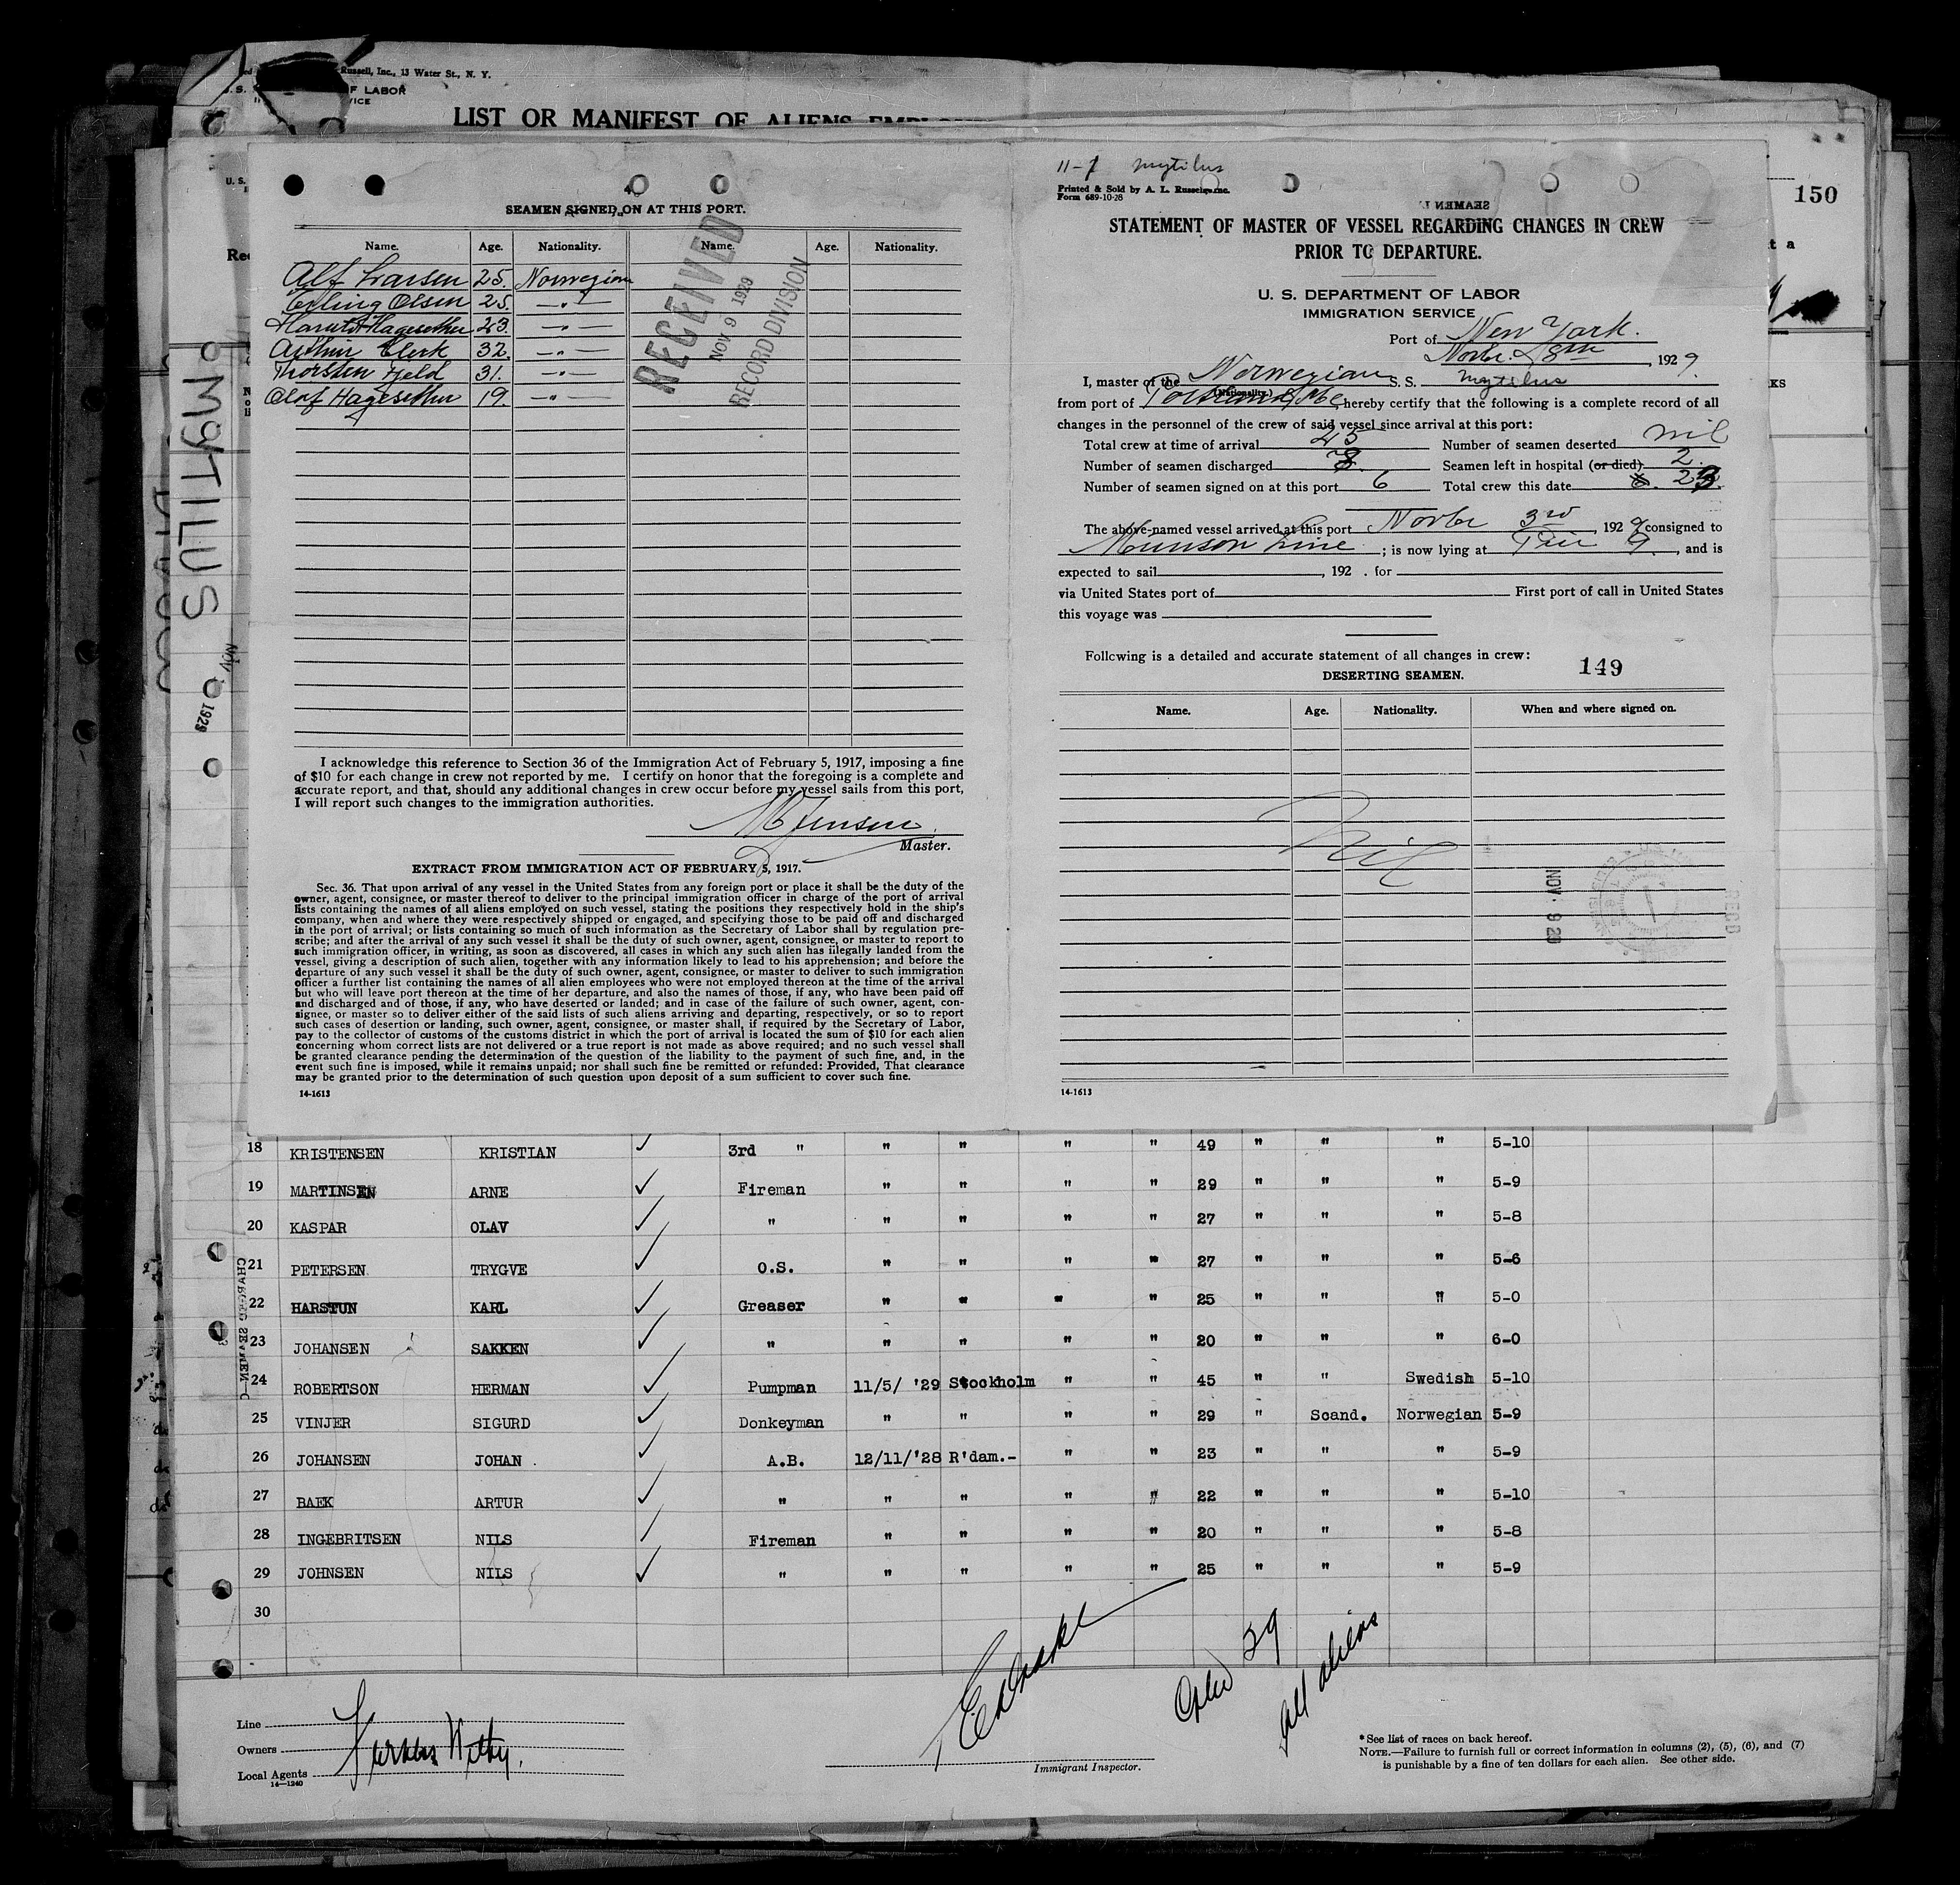 Russell, Inc., 13 Water St., N. Y.
F LABOR
VICE
LIST OR MANIFEST OF ALIENS
150
SEAMEN SIGNED ON AT THIS PORT.
Name. Age. Nationality. Name. Age. Nationality.
Alf Larsen 25. Norwegian
Erling Olsen 25. —"—
Harald Hagesether 23. —"—
Arthur Clerk 32. —"—
Thorsten Jeld 31. —"—
Olaf Hagesether 19. —"—
RECEIVED
NOV 9 1929
RECORD DIVISION
I acknowledge this reference to Section 36 of the Immigration Act of February 5, 1917, imposing a fine
of $10 for each change in crew not reported by me. I certify on honor that the foregoing is a complete and
accurate report, and that, should any additional changes in crew occur before my vessel sails from this port,
I will report such changes to the immigration authorities.
Jensen
Master.
EXTRACT FROM IMMIGRATION ACT OF FEBRUARY 5, 1917.
Sec. 36. That upon arrival of any vessel in the United States from any foreign port or place it shall be the duty of the
owner, agent, consignee, or master thereof to deliver to the principal immigration officer in charge of the port of arrival
lists containing the names of all aliens employed on such vessel, stating the positions they respectively hold in the ship's
company, when and where they were respectively shipped or engaged, and specifying those to be paid off and discharged
in the port of arrival; or lists containing so much of such information as the Secretary of Labor shall by regulation pre-
scribe; and after the arrival of any such vessel it shall be the duty of such owner, agent, consignee, or master to report to
such immigration officer, in writing, as soon as discovered, all cases in which any such alien has illegally landed from the
vessel, giving a description of such alien, together with any information likely to lead to his apprehension; and before the
departure of any such vessel it shall be the duty of such owner, agent, consignee, or master to deliver to such immigration
officer a further list containing the names of all alien employees who were not employed thereon at the time of the arrival
but who will leave port thereon at the time of her departure, and also the names of those, if any, who have been paid off
and discharged and of those, if any, who have deserted or landed; and in case of the failure of such owner, agent, con-
signee, or master so to deliver either of the said lists of such aliens arriving and departing, respectively, or so to report
such cases of desertion or landing, such owner, agent, consignee, or master shall, if required by the Secretary of Labor,
pay to the collector of customs of the customs district in which the port of arrival is located the sum of $10 for each alien
concerning whom correct lists are not delivered or a true report is not made as above required; and no such vessel shall
be granted clearance pending the determination of the question of the liability to the payment of such fine, and, in the
event such fine is imposed, while it remains unpaid; nor shall such fine be remitted or refunded: Provided, That clearance
may be granted prior to the determination of such question upon deposit of a sum sufficient to cover such fine.
14-1613
11-7 Mytilus
Printed & Sold by A. L. Russell, Inc.
Form 689-10-28
STATEMENT OF MASTER OF VESSEL REGARDING CHANGES IN CREW
PRIOR TO DEPARTURE.
U. S. DEPARTMENT OF LABOR
IMMIGRATION SERVICE
Port of New York.
Novbr. 8th, 1929.
I, master of the Norwegian S. S. Mytilus
(Nationality.)
from port of Portland, Me, hereby certify that the following is a complete record of all
changes in the personnel of the crew of said vessel since arrival at this port:
Total crew at time of arrival Number of seamen deserted nil
Number of seamen discharged Seamen left in hospital (or died) 2.
Number of seamen signed on at this port 6 Total crew this date
The above-named vessel arrived at this port Novbr 3rd, 1929 consigned to
Munson Line; is now lying at Pier 9, and is
expected to sail , 192 . for
via United States port of First port of call in United States
this voyage was
Following is a detailed and accurate statement of all changes in crew:
149
DESERTING SEAMEN.
Name. Age. Nationality. When and where signed on.
Nil
NOV 9 29
RECD
14-1613
MYTILUS
NOV 6 1929
18 KRISTENSEN KRISTIAN ✓ 3rd " " " " " 49 " " " 5-10
19 MARTINSEN ARNE ✓ Fireman " " " " 29 " " " 5-9
20 KASPAR OLAV ✓ " " " " " 27 " " " 5-8
21 PETERSEN TRYGVE ✓ O.S. " " " " 27 " " " 5-6
22 HARSTUN KARL ✓ Greaser " " " " 25 " " " 5-0
23 JOHANSEN SAKKEN ✓ " " " " " 20 " " " 6-0
24 ROBERTSON HERMAN ✓ Pumpman 11/5/ '29 Stockholm " " 45 " " Swedish 5-10
25 VINJER SIGURD ✓ Donkeyman " " " " 29 " Scand. Norwegian 5-9
26 JOHANSEN JOHAN ✓ A.B. 12/11/'28 R'dam.- " " 23 " " " 5-9
27 BAEK ARTUR ✓ " " " " " 22 " " " 5-10
28 INGEBRITSEN NILS ✓ Fireman " " " " 20 " " " 5-8
29 JOHNSEN NILS ✓ " " " " " 25 " " " 5-9
30
29
all aliens
Line
Owners
Local Agents
14—1240
Immigrant Inspector.
*See list of races on back hereof.
NOTE.—Failure to furnish full or correct information in columns (2), (5), (6), and (7)
is punishable by a fine of ten dollars for each alien. See other side.